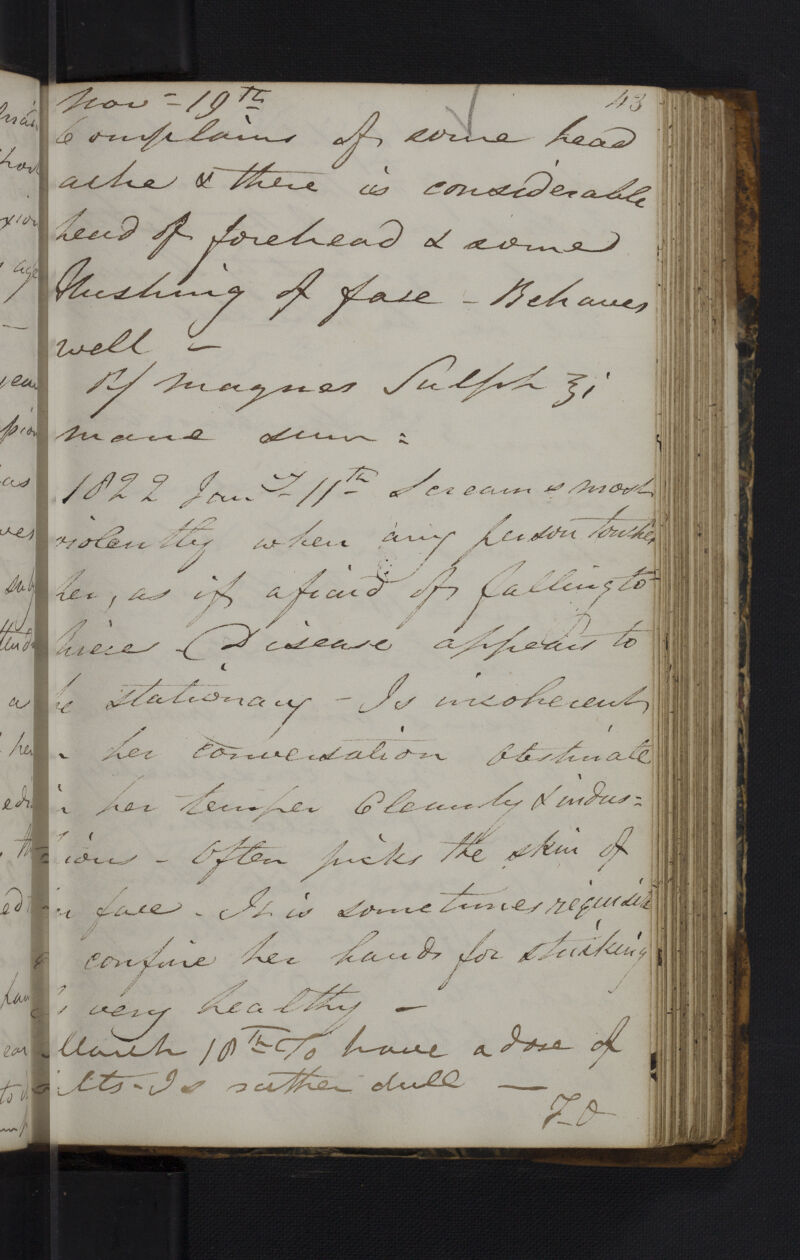 Nov = 19th 43
Complains of some head
ache & there is considerable
head of forehead & some
flushing of face - Behaves
well -
R/ Magnes Sulph ʒi
mane sum =
1822 Jany 11th Screams most
violently when any person touches
her, as if afraid of falling to
piece - Disease appears to
be stationary - Is incoherent
her conversation Obstinate
in her temper Cleanly & indus=
trious - Often picks the skin of
face - It is sometimes requisite
confine her hands for striking
Is very healthy -
March 18th To have a dose of
salts - Is rather dull -